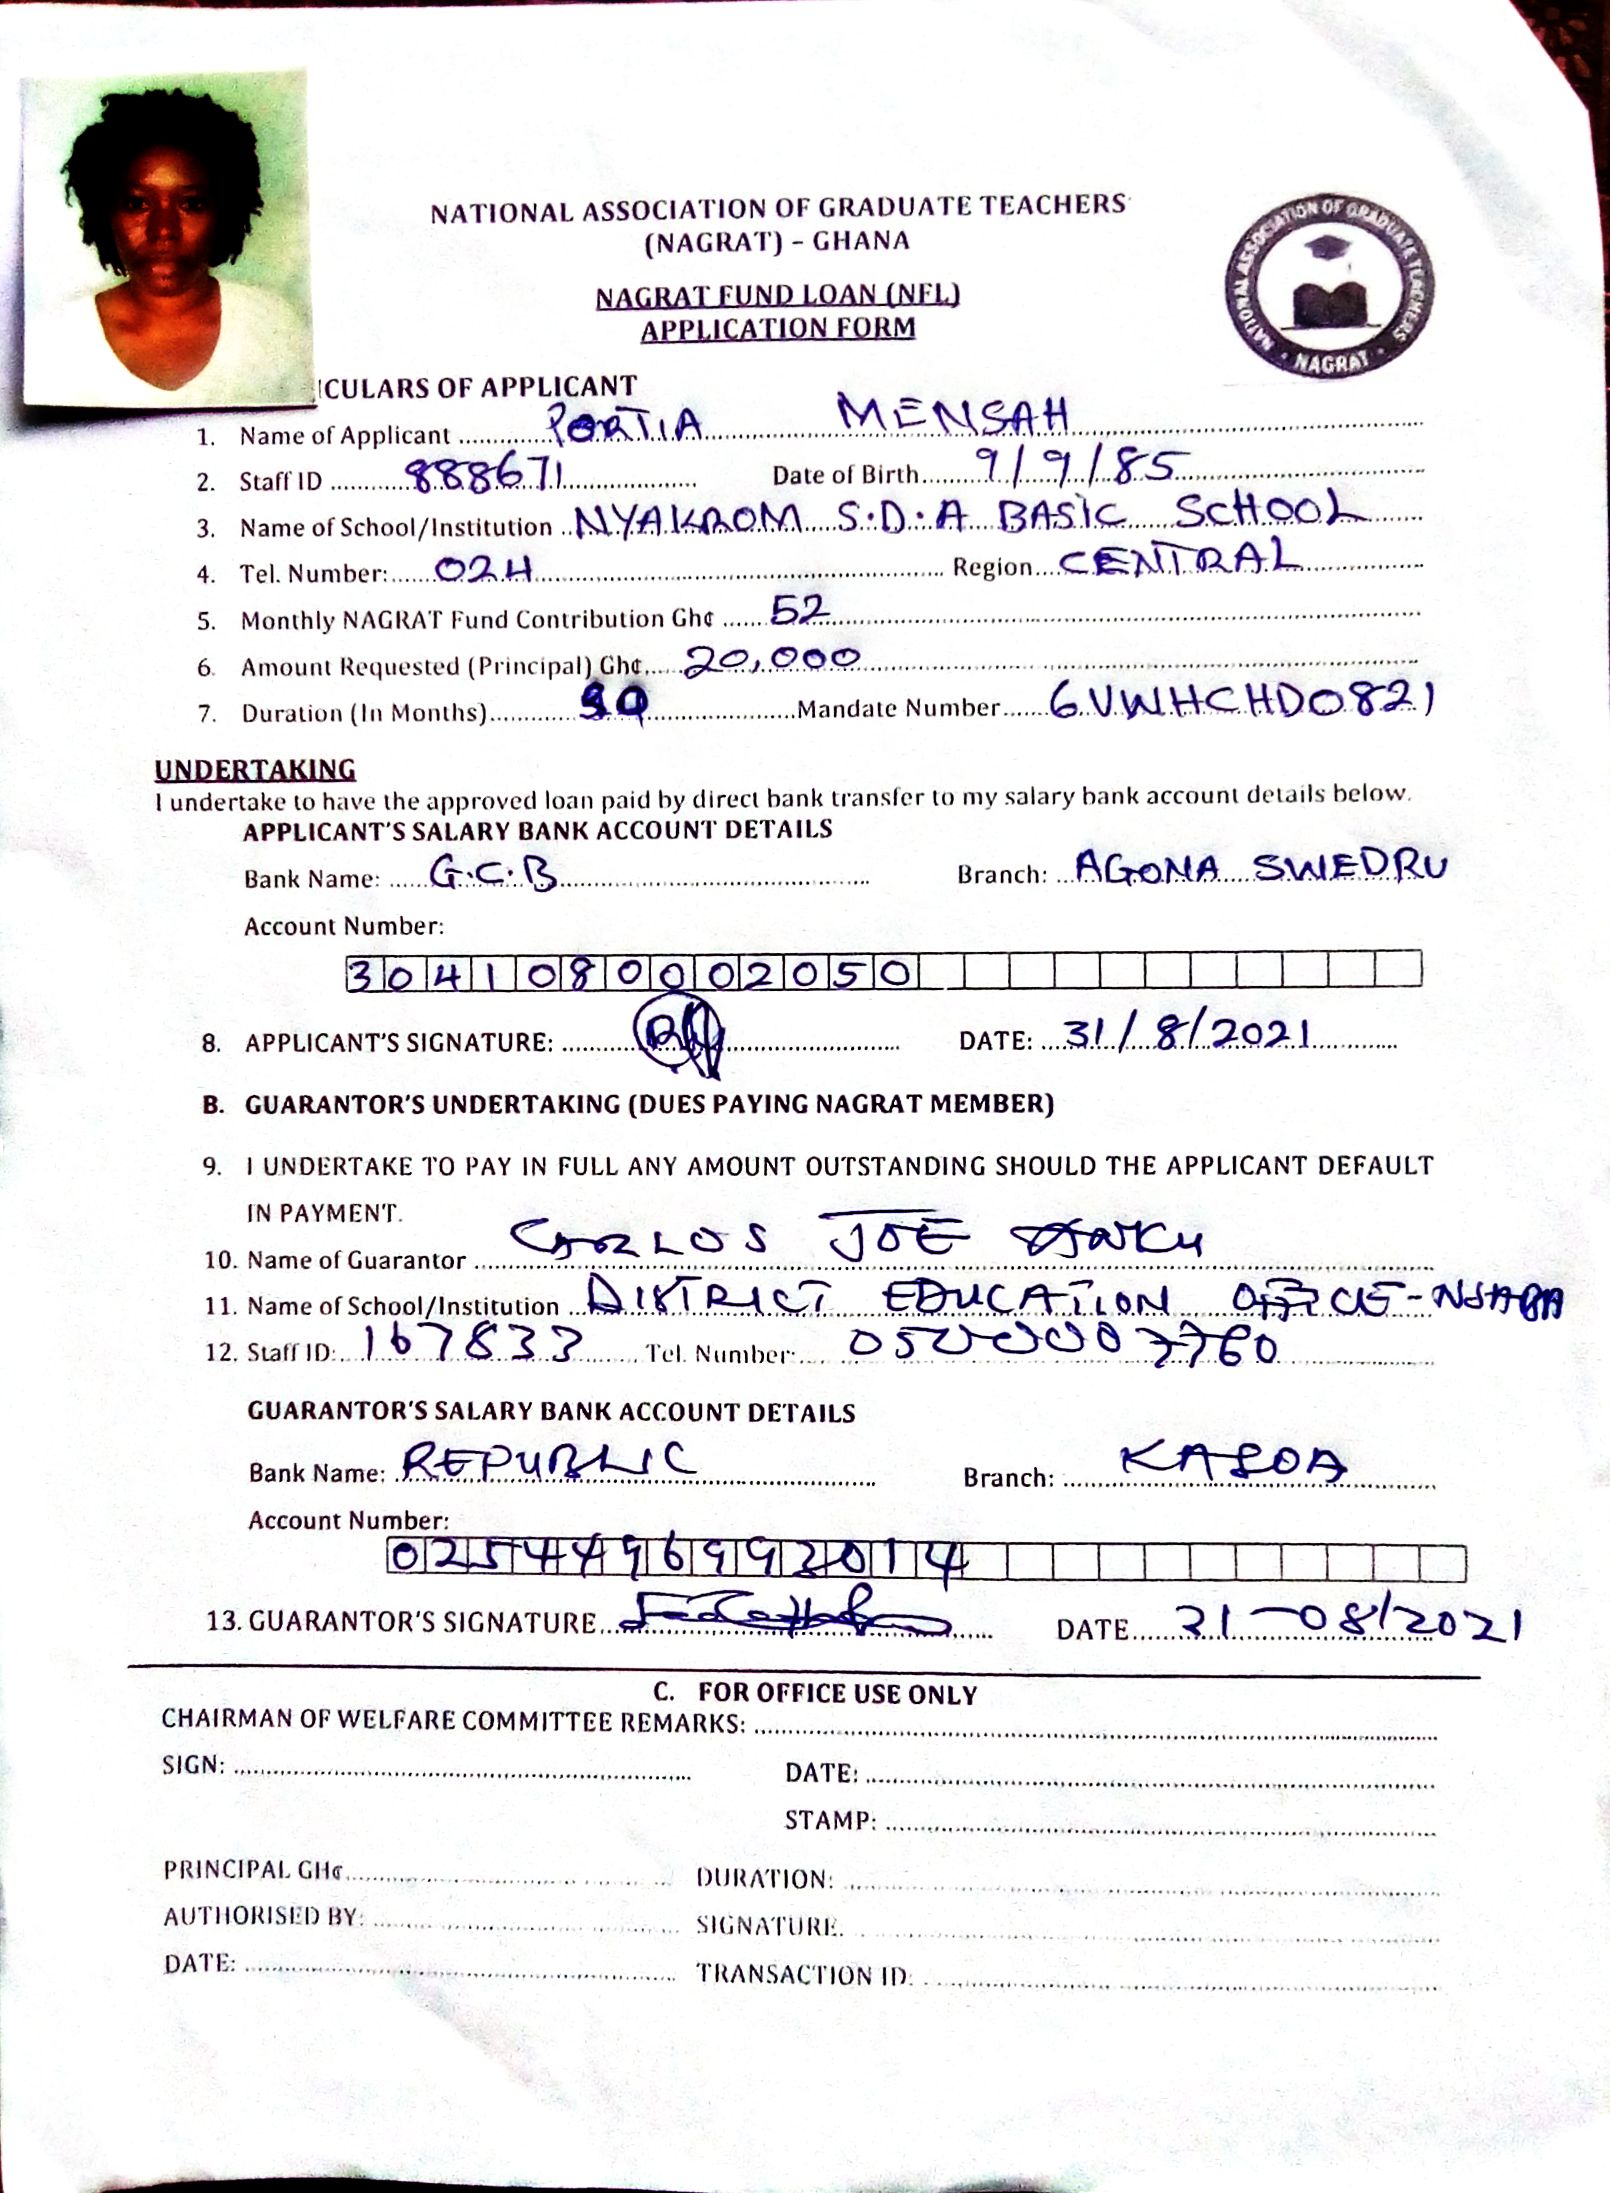 NATIONAL ASSOCIATION OF GRADUATE TEACHERS
(NAGRAT) – GHANA
NATIONAL ASSOCIATION OF GRADUATE TEACHERS · NAGRAT ·
NAGRAT FUND LOAN (NFL)
APPLICATION FORM
ICULARS OF APPLICANT
1. Name of Applicant PORTIA MENSAH
2. Staff ID 888671 Date of Birth 9/9/85
3. Name of School/Institution NYAKROM S.D.A BASIC SCHOOL
4. Tel. Number: 024 Region CENTRAL
5. Monthly NAGRAT Fund Contribution Gh¢ 52
6. Amount Requested (Principal) Gh¢ 20,000
7. Duration (In Months) Mandate Number 6VWHCHD0821
UNDERTAKING
I undertake to have the approved loan paid by direct bank transfer to my salary bank account details below.
APPLICANT'S SALARY BANK ACCOUNT DETAILS
Bank Name: G.C.B Branch: AGONA SWEDRU
Account Number:
3041080002050
8. APPLICANT'S SIGNATURE: DATE: 31/8/2021
B. GUARANTOR'S UNDERTAKING (DUES PAYING NAGRAT MEMBER)
9. I UNDERTAKE TO PAY IN FULL ANY AMOUNT OUTSTANDING SHOULD THE APPLICANT DEFAULT
IN PAYMENT.
10. Name of Guarantor CARLOS JOE
11. Name of School/Institution DISTRICT EDUCATION OFFICE - NSABA
12. Staff ID: 167833 Tel. Number:
GUARANTOR'S SALARY BANK ACCOUNT DETAILS
Bank Name: REPUBLIC Branch: KASOA
Account Number:
13. GUARANTOR'S SIGNATURE DATE 31-08/2021
C. FOR OFFICE USE ONLY
CHAIRMAN OF WELFARE COMMITTEE REMARKS:
SIGN: DATE:
STAMP:
PRINCIPAL GH¢ DURATION:
AUTHORISED BY: SIGNATURE.
DATE: TRANSACTION ID: